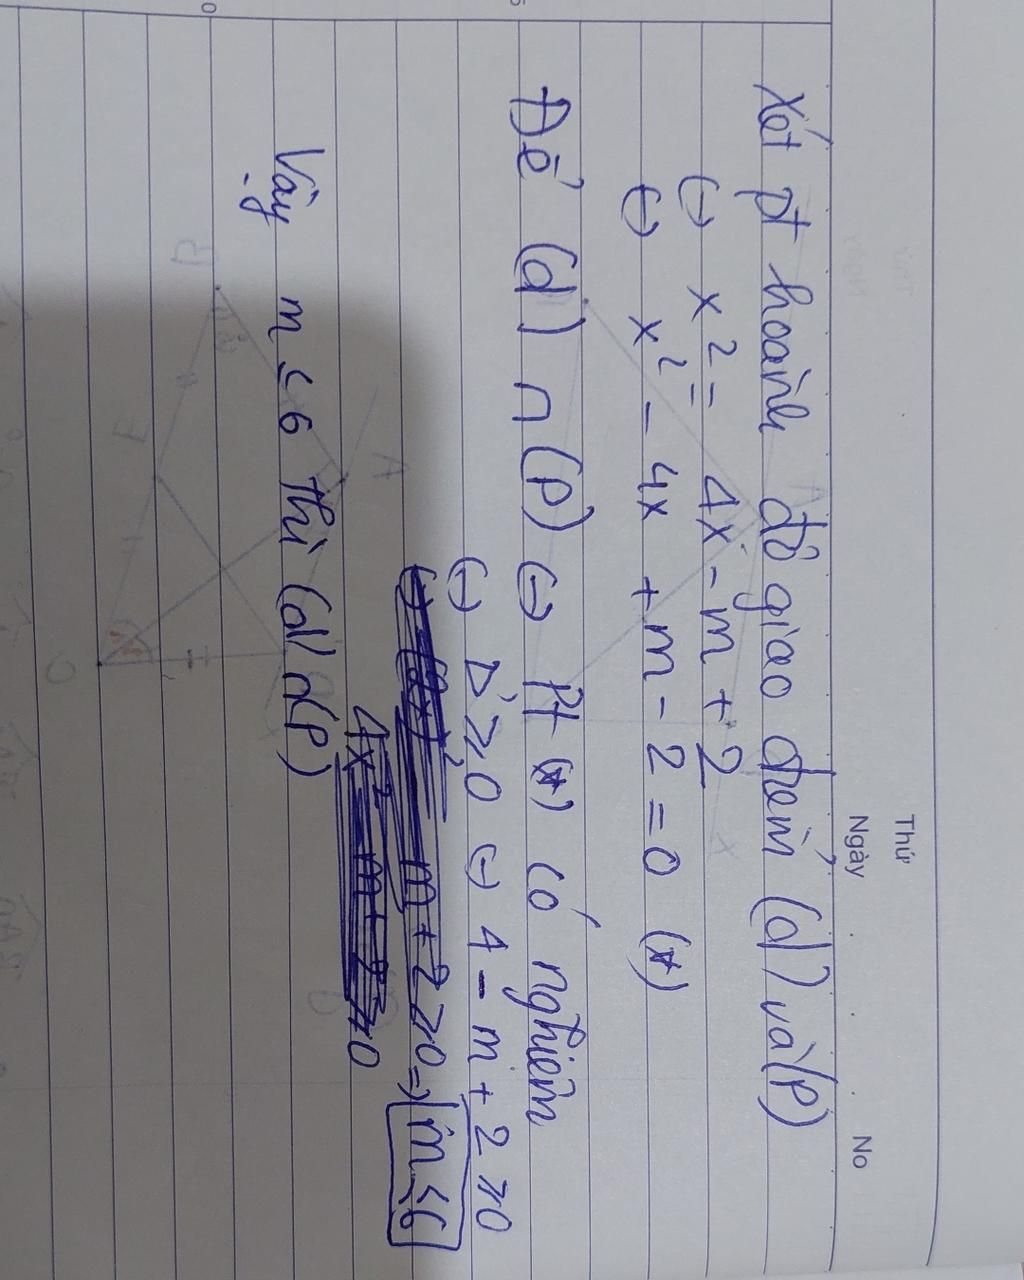 Thứ
Ngày . . . No
Xét pt hoành độ giao điểm (d) và (P)
(-) x² = 4x - m + 2
(-) x² - 4x + m - 2 = 0 (*)
Để (d) ∩ (P) (-) Pt (*) có nghiệm
(-) Δ' ≥ 0 (-) 4 - m + 2 ≥ 0
m + 2 ≥ 0 => m ≤ 6
Vậy m ≤ 6 thì (d) ∩ (P)